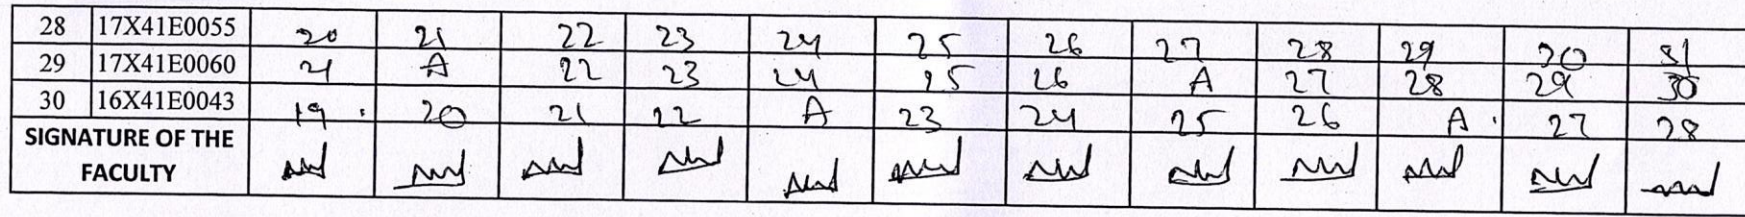 28 17X41E0055 20 21 22 23 24 25 26 27 28 29 30 31
29 17X41E0060 21 A 22 23 24 25 26 A 27 28 29 30
30 16X41E0043 19 20 21 22 A 23 24 25 26 A 27 28
SIGNATURE OF THE
FACULTY